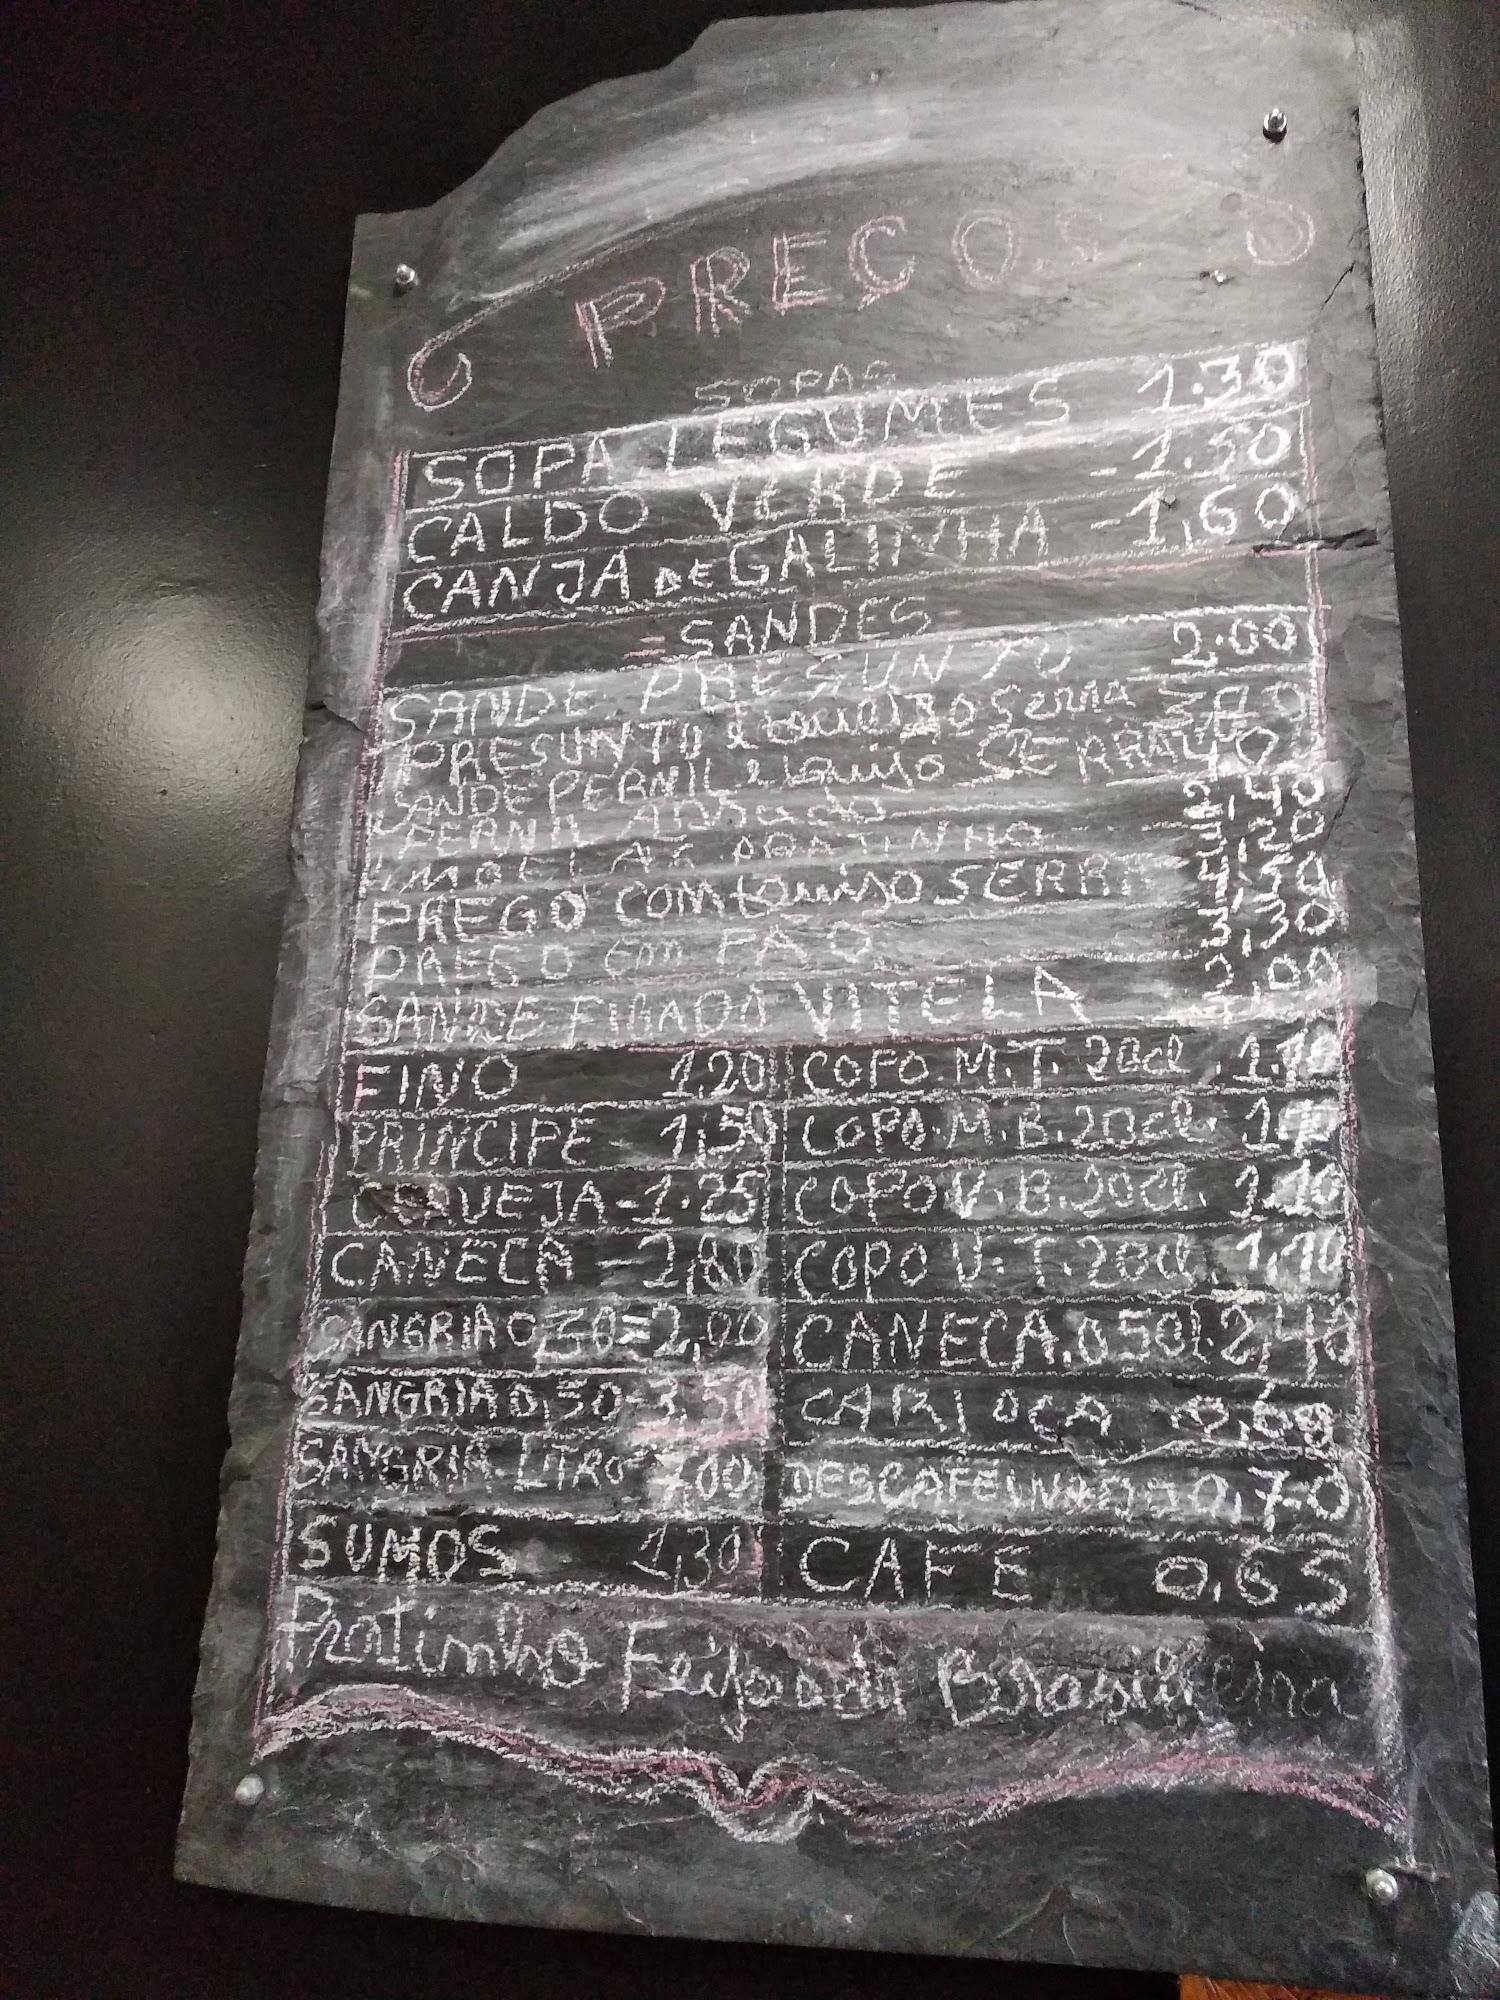 PREÇOS
SOPAS
SOPA LEGUMES 1.30
CALDO VERDE - 1.50
CANJA DE GALINHA - 1,60
= SANDES =
SANDE PRESUNTO 2.00
PRESUNTO e queijo Serra
SANDE PERNIL e queijo SERRA
PERNA Assada 2,40
PRATINHO 3,20
PREGO com queijo SERRA 4,50
PREGO em PÃO 3,30
SANDE FIGADO VITELA 2,00
FINO 1,20 COPO M.T. 20cl. 1.10
PRINCIPE - 1,50 COPO.M.B.20cl. 1.10
CERVEJA - 1.25 COPO V.B.20cl. 1.10
CANECA - 2,80 COPO V.T.20cl. 1,10
SANGRIA 0,30 = 2,00 CANECA.0.50cl.2,40
SANGRIA 0,50 = 3,50 CARIOCA 0,60
SANGRIA LITRO = 7,00 DESCAFEINADO 0,70
SUMOS 1,30 CAFE 0,65
Pratinho Feijoada Brasileira